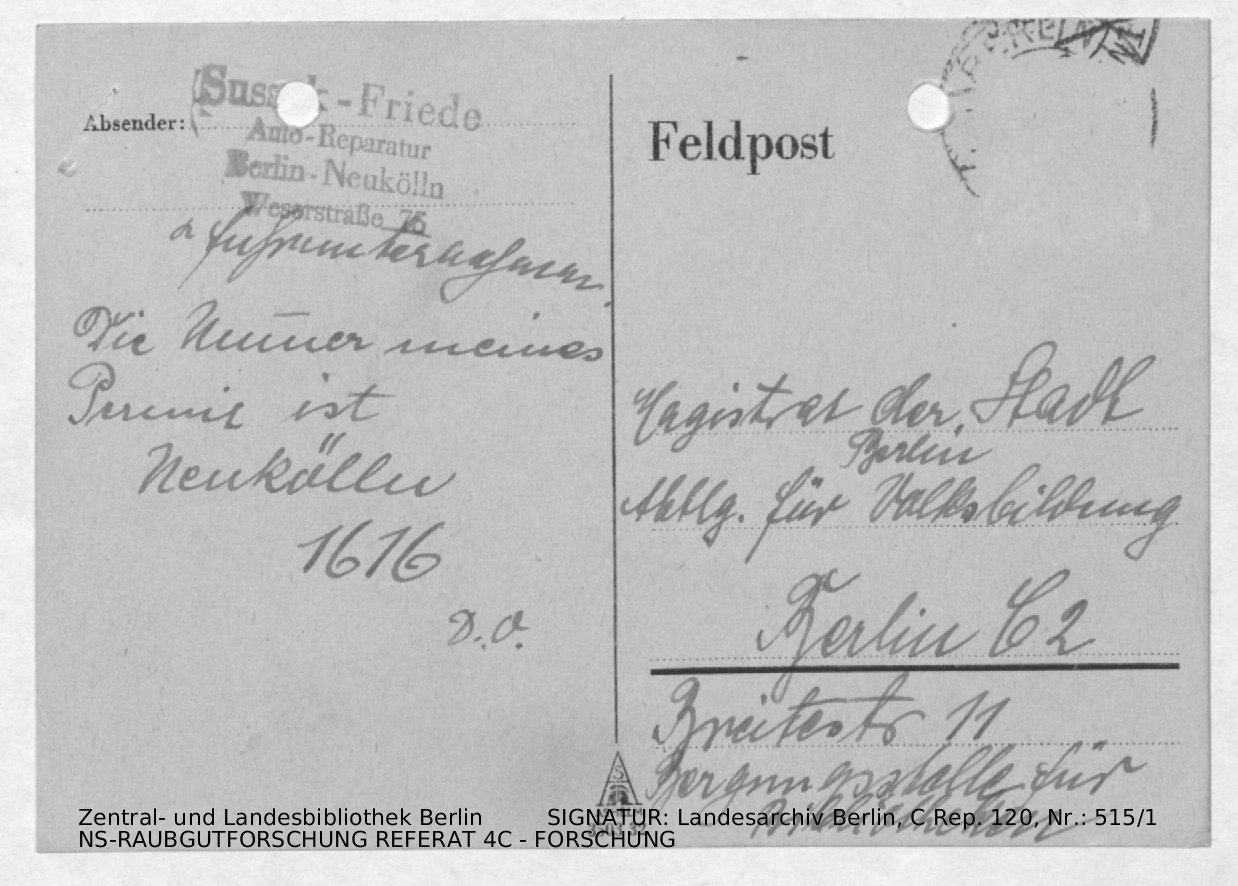 Absender:
Sussek-Friede
Auto-Reparatur
Berlin-Neukölln
Weserstraße 75
Fuhrunternehmen.
Die Nummer meines
Permit ist
Neukölln
1616
D.O.
Feldpost
Magistrat der Stadt
Berlin
Abtlg. für Volksbildung
Berlin C2
Breitestr 11
Bergungsstelle für
Bibliotheken
Zentral- und Landesbibliothek Berlin SIGNATUR: Landesarchiv Berlin, C Rep. 120, Nr.: 515/1
NS-RAUBGUTFORSCHUNG REFERAT 4C - FORSCHUNG